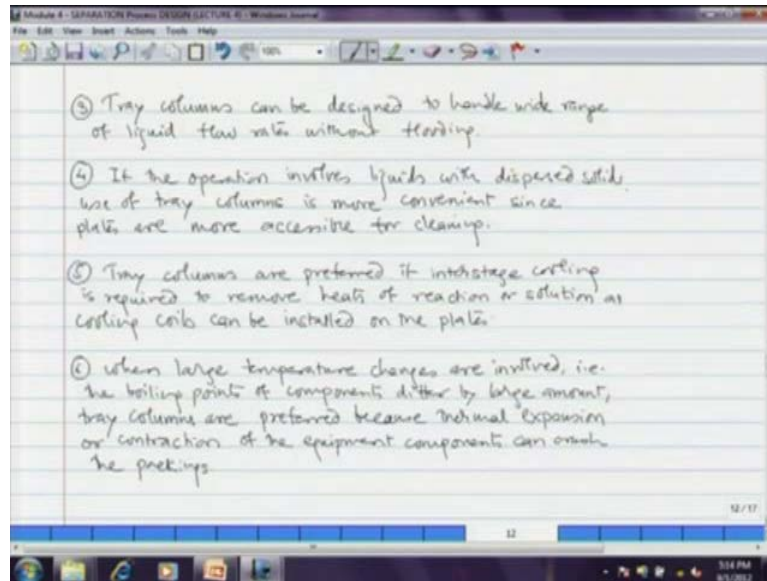 Module 4 - SEPARATION Process DESIGN (LECTURE 4) - Windows Journal
File Edit View Insert Actions Tools Help
100%
③ Tray columns can be designed to handle wide range
of liquid flow rates without flooding.
④ If the operation involves liquids with dispersed solid,
use of tray columns is more convenient since
plates are more accessible for cleaning.
⑤ Tray columns are preferred if interstage cooling
is required to remove heats of reaction or solution as
cooling coils can be installed on the plates
⑥ when large temperature changes are involved, i.e.
the boiling points of components differ by large amount,
tray columns are preferred because thermal expansion
or contraction of the equipment components can crush
the packings
12/17
12
5:14 PM